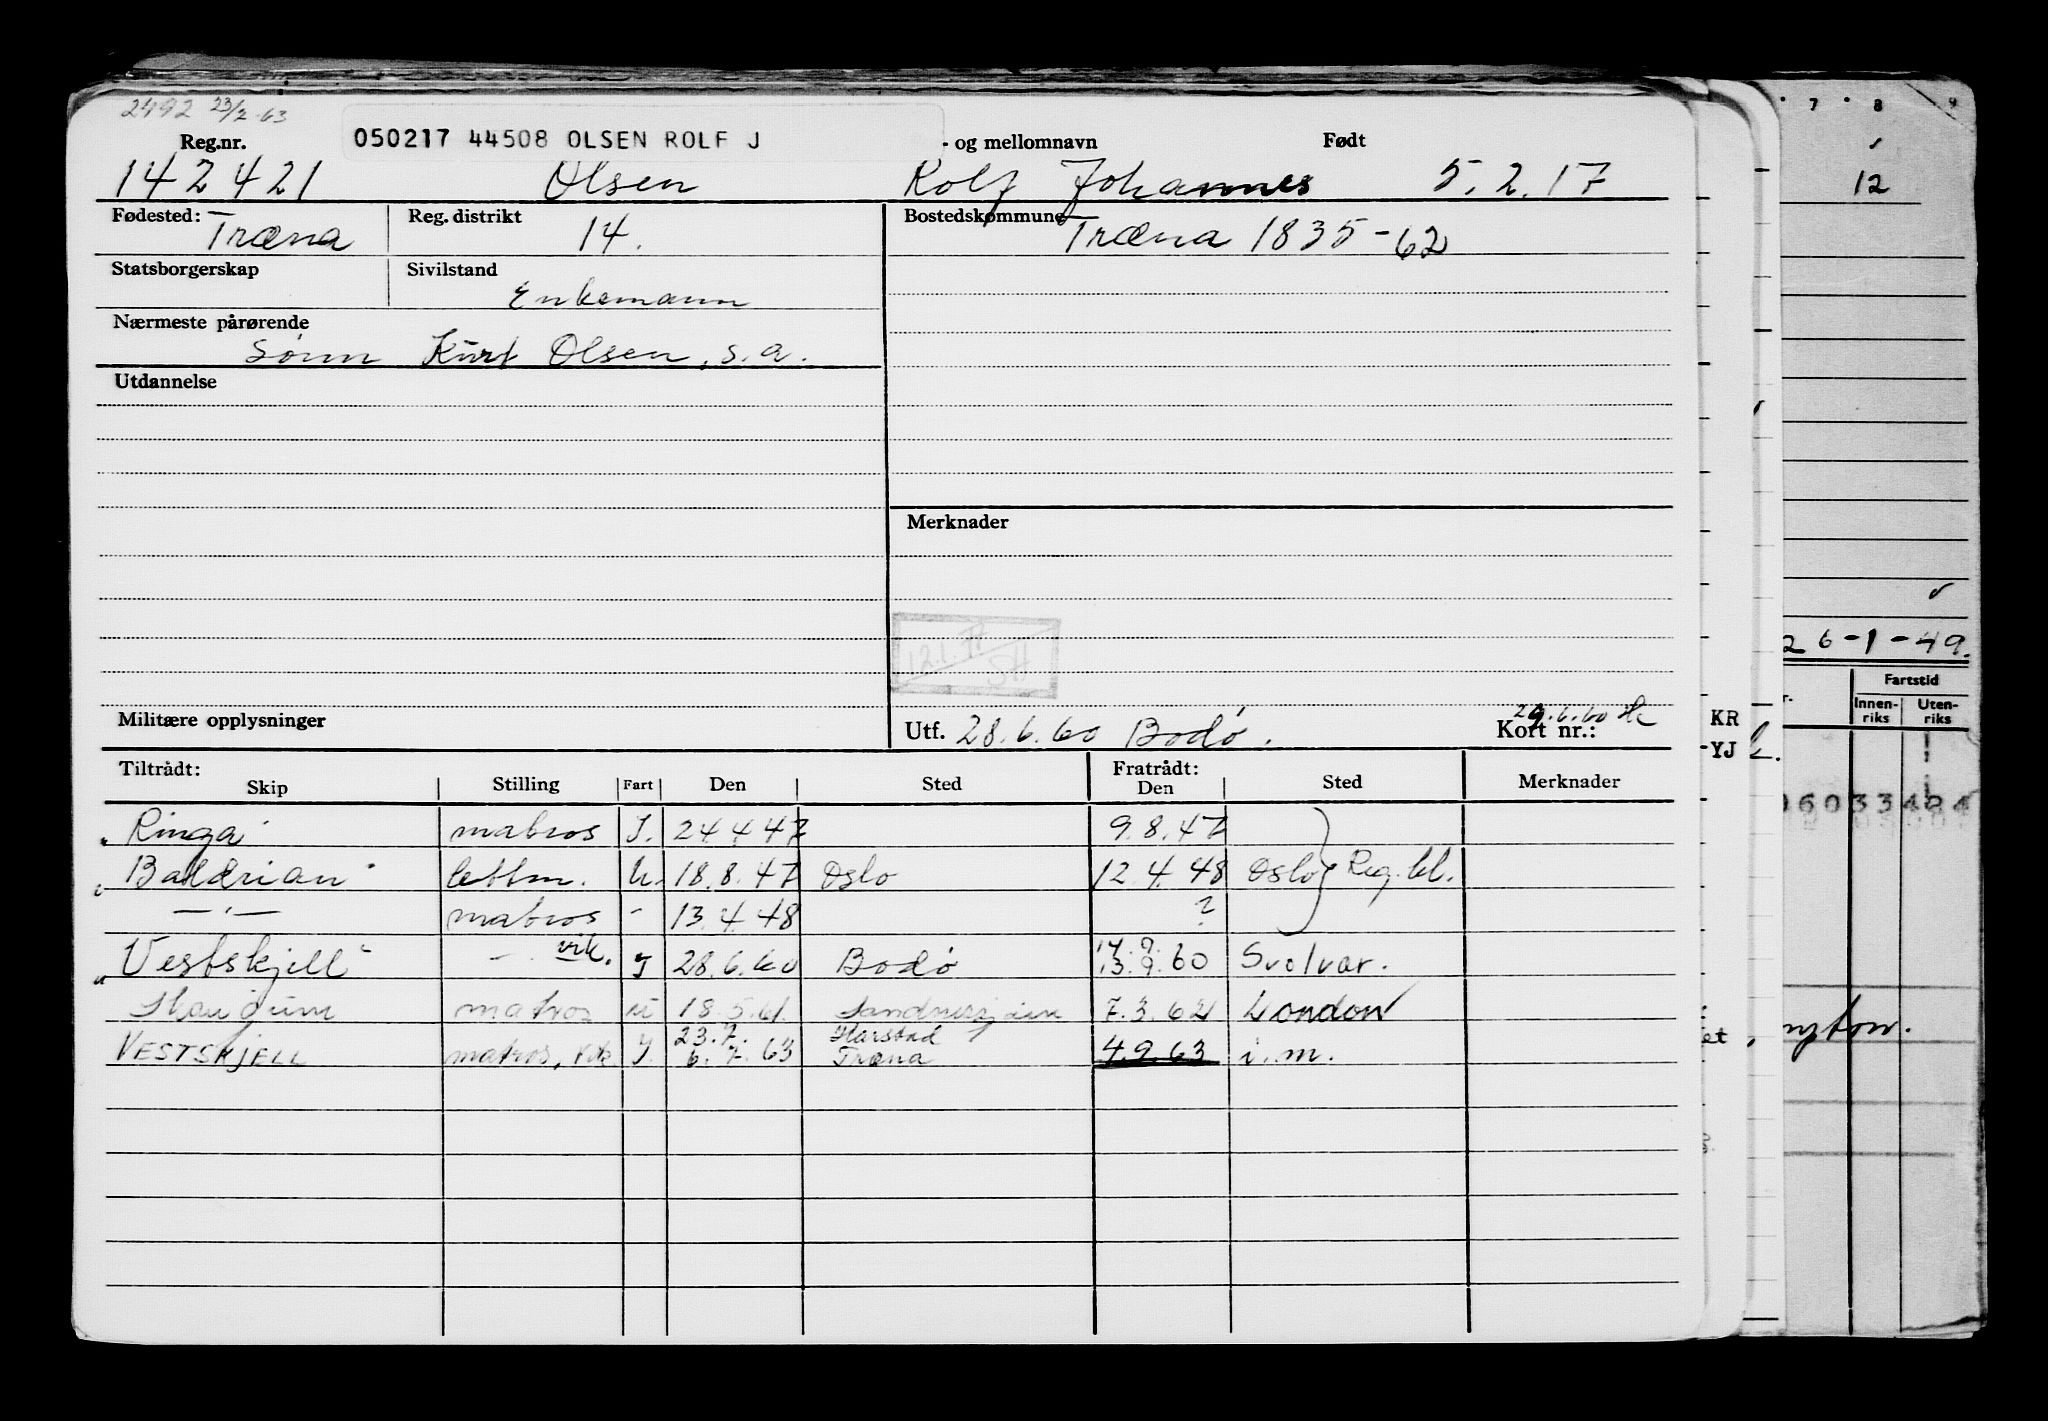 2492 23/2-63
Reg.nr. 050217 44508 OLSEN ROLF J - og mellomnavn Født
142421 Olsen Rolf Johannes 5.2.17
Fødested: Træna Reg. distrikt 14. Bostedskommune Træna 1835-62
Statsborgerskap Sivilstand Enkemann
Nærmeste pårørende
Sønn Kurt Olsen, s.a.
Utdannelse
Merknader
12.1.77
SH
Militære opplysninger Utf. 28.6.60 Bodø. Kort nr.: 29.6.60
Tiltrådt: Fratrådt:
Skip Stilling Fart Den Sted Den Sted Merknader
Ringa matros I. 24.4.47 9.8.47
Baldrian lettm. U. 18.8.47 Oslo 12.4.48 Oslo Reg. bl.
—"— matros - 13.4.48 ?
Vestskjell - vik. I 28.6.60 Bodø 13.9.60 Svolvær.
matros U 18.5.61. Sandnessjøen 7.3.62 London
23.7. Harstad
VESTSKJELL matros, vik. I. 6.7.63 Træna 4.9.63 i.m.
7 8 9
12
26-1-49.
Fartstid
Innen-riks Uten-riks
KR
-YJ
06033484